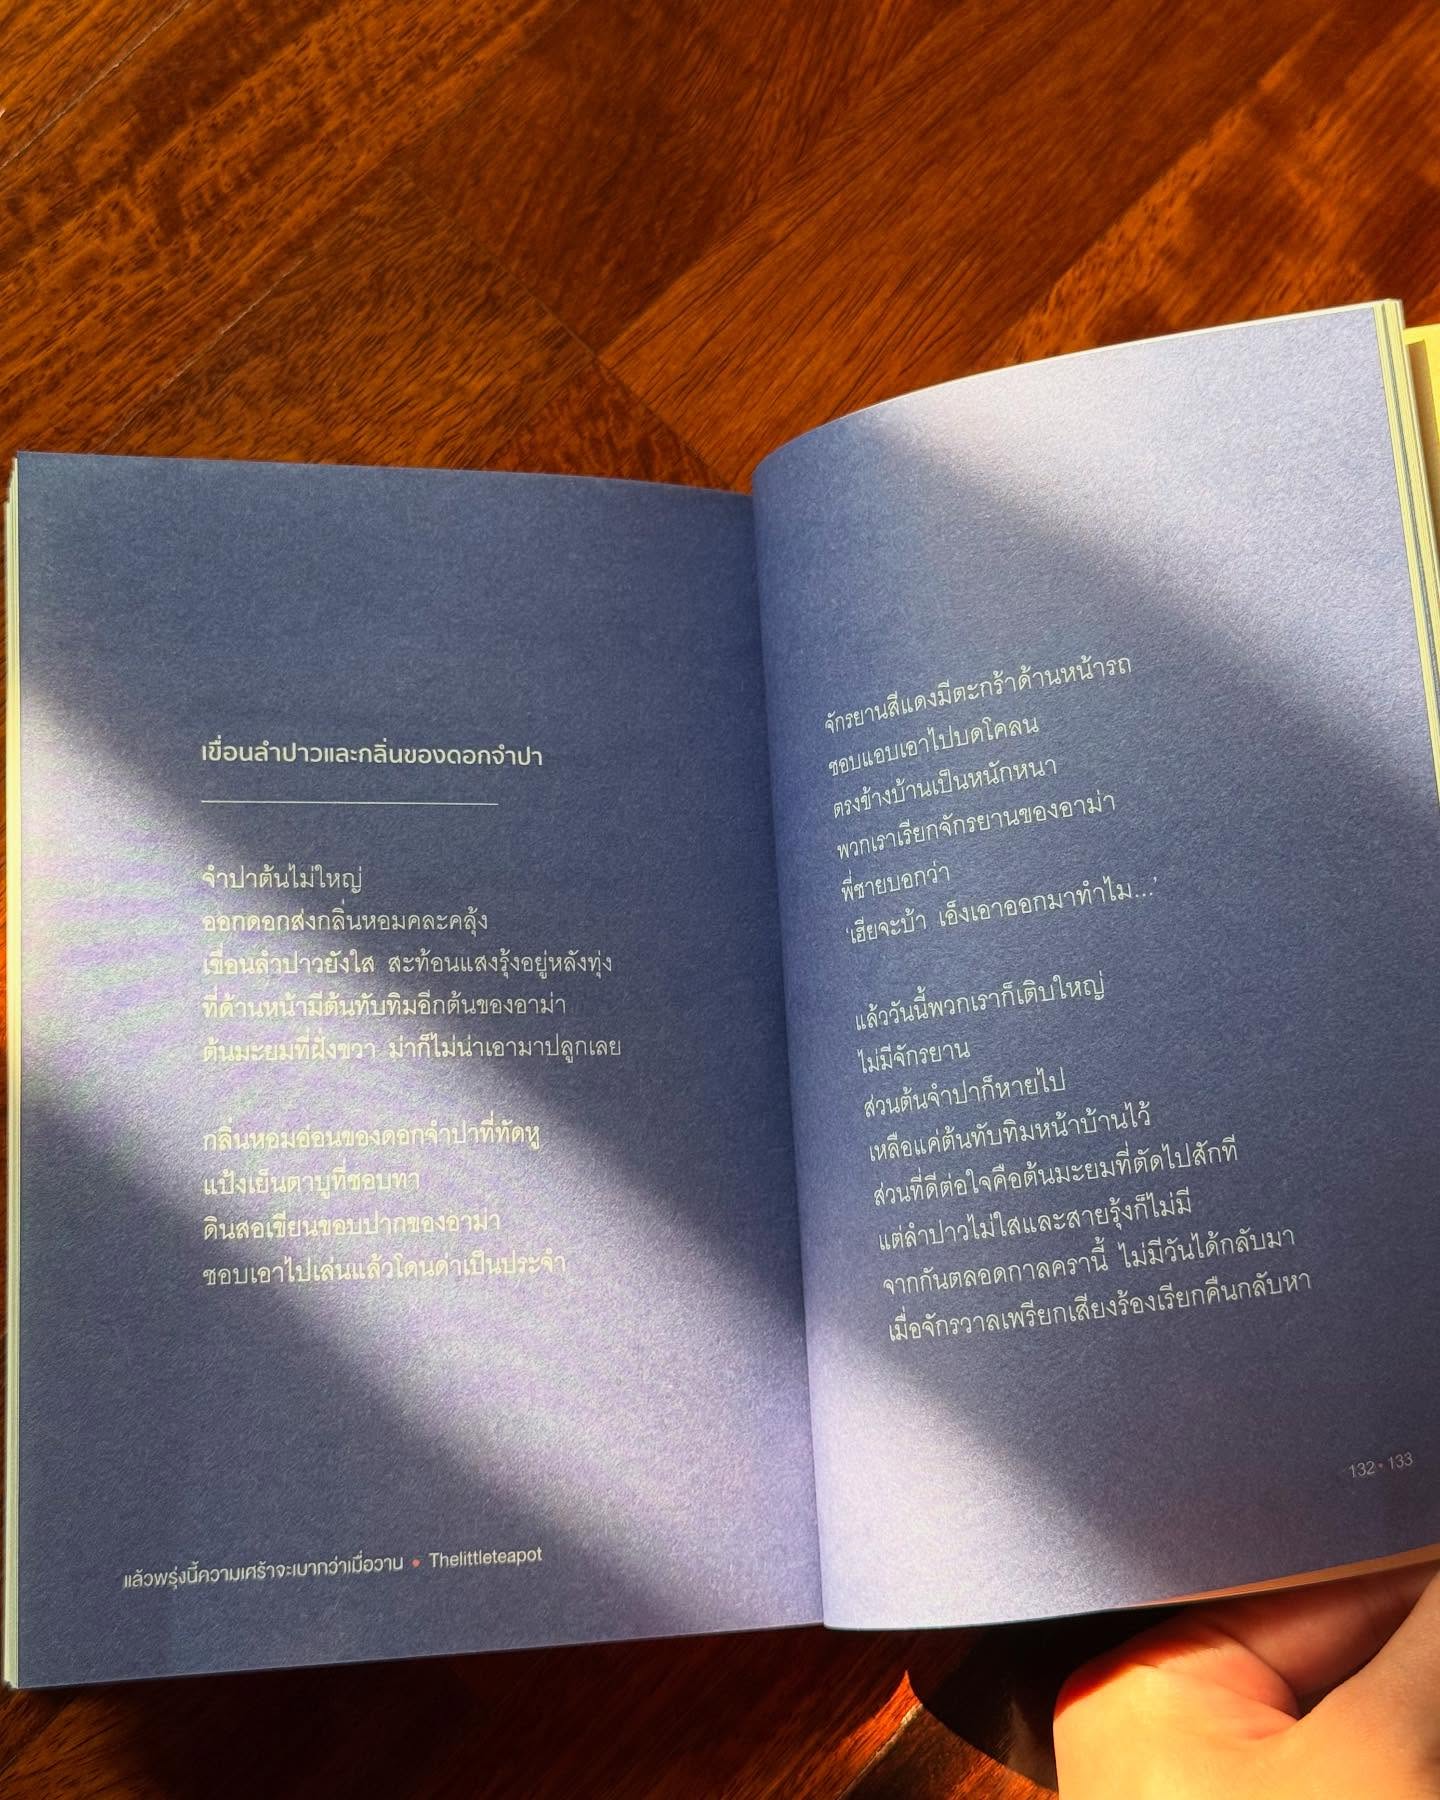 เขื่อนลำปาวและกลิ่นของดอกจำปา
จำปาต้นไม่ใหญ่
ออกดอกส่งกลิ่นหอมคละคลุ้ง
เขื่อนลำปาวยังใส สะท้อนแสงรุ้งอยู่หลังทุ่ง
ที่ด้านหน้ามีต้นทับทิมอีกต้นของอาม่า
ต้นมะยมที่ฝั่งขวา ม่าก็ไม่น่าเอามาปลูกเลย
กลิ่นหอมอ่อนของดอกจำปาที่ทัดหู
แป้งเย็นตาบูที่ชอบทา
ดินสอเขียนขอบปากของอาม่า
ชอบเอาไปเล่นแล้วโดนด่าเป็นประจำ
แล้วพรุ่งนี้ความเศร้าจะเบากว่าเมื่อวาน • Thelittleteapot
จักรยานสีแดงมีตะกร้าด้านหน้ารถ
ชอบแอบเอาไปบดโคลน
ตรงข้างบ้านเป็นหนักหนา
พวกเราเรียกจักรยานของอาม่า
พี่ชายบอกว่า
‘เฮียจะบ้า เอ็งเอาออกมาทำไม...’
แล้ววันนี้พวกเราก็เติบใหญ่
ไม่มีจักรยาน
ส่วนต้นจำปาก็หายไป
เหลือแค่ต้นทับทิมหน้าบ้านไว้
ส่วนที่ดีต่อใจคือต้นมะยมที่ตัดไปสักที
แต่ลำปาวไม่ใสและสายรุ้งก็ไม่มี
จากกันตลอดกาลครานี้ ไม่มีวันได้กลับมา
เมื่อจักรวาลเพรียกเสียงร้องเรียกคืนกลับหา
132 • 133